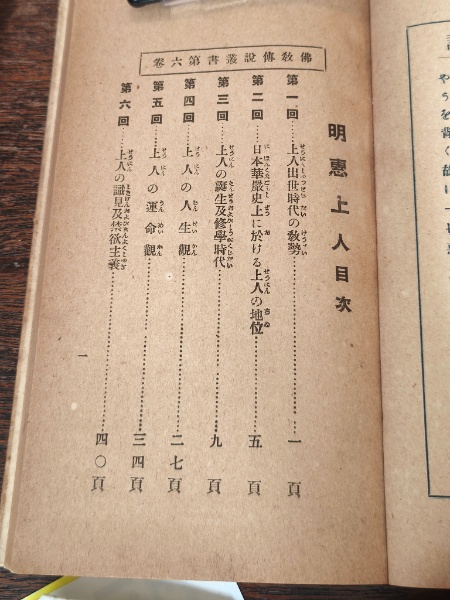 佛教傳說叢書第六卷
明惠上人目次
第一回……上人出世時代の敎勢……一頁
第二回……日本華嚴史上に於ける上人の地位……五頁
第三回……上人の誕生及修學時代……九頁
第四回……上人の人生觀……二七頁
第五回……上人の運命觀……三四頁
第六回……上人の識見及禁欲主義……四〇頁
一